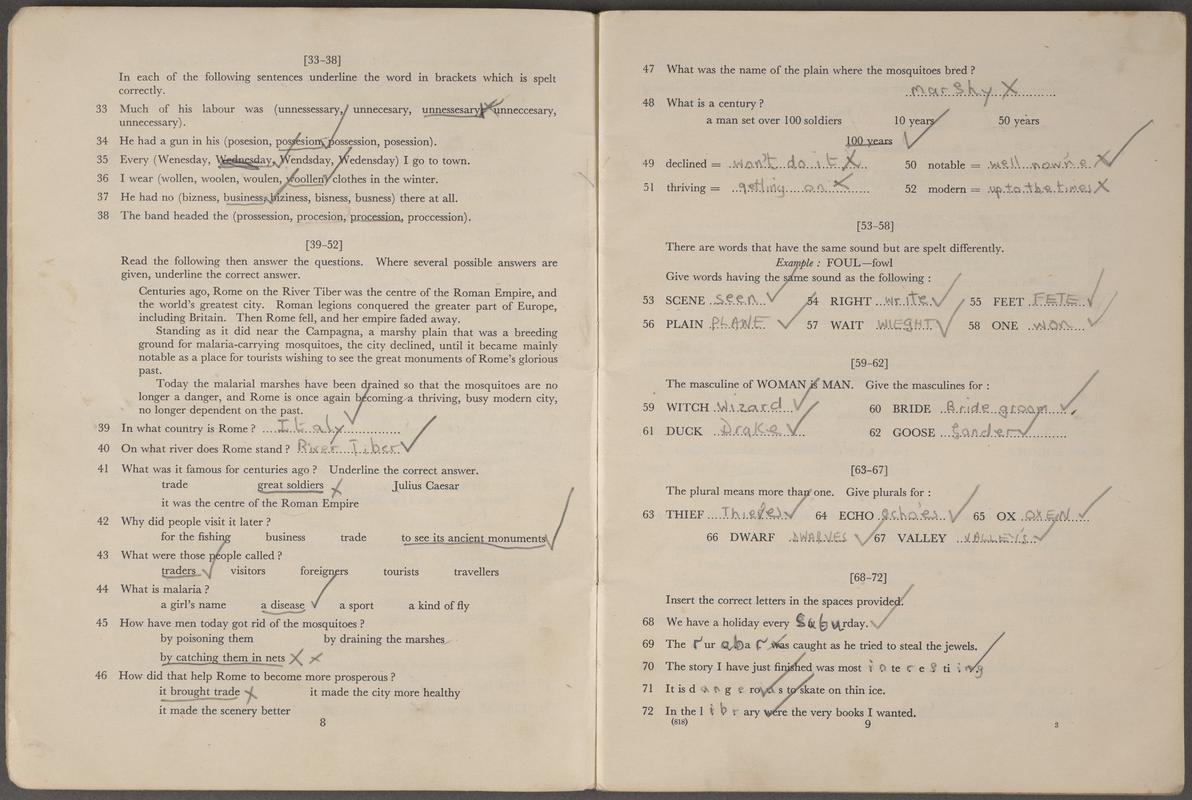 [33–38]
In each of the following sentences underline the word in brackets which is spelt
correctly.
33 Much of his labour was (unnessessary, unnecesary, unnessesary, unneccesary,
unnecessary).
34 He had a gun in his (posesion, possesion, possession, posession).
35 Every (Wenesday, Wednesday, Wendsday, Wedensday) I go to town.
36 I wear (wollen, woolen, woulen, woollen) clothes in the winter.
37 He had no (bizness, business, biziness, bisness, busness) there at all.
38 The band headed the (prossession, procesion, procession, proccession).
[39–52]
Read the following then answer the questions. Where several possible answers are
given, underline the correct answer.
Centuries ago, Rome on the River Tiber was the centre of the Roman Empire, and
the world's greatest city. Roman legions conquered the greater part of Europe,
including Britain. Then Rome fell, and her empire faded away.
Standing as it did near the Campagna, a marshy plain that was a breeding
ground for malaria-carrying mosquitoes, the city declined, until it became mainly
notable as a place for tourists wishing to see the great monuments of Rome's glorious
past.
Today the malarial marshes have been drained so that the mosquitoes are no
longer a danger, and Rome is once again becoming a thriving, busy modern city,
no longer dependent on the past.
39 In what country is Rome? Italy
40 On what river does Rome stand? River Tiber
41 What was it famous for centuries ago? Underline the correct answer.
trade great soldiers Julius Caesar
it was the centre of the Roman Empire
42 Why did people visit it later?
for the fishing business trade to see its ancient monuments
43 What were those people called?
traders visitors foreigners tourists travellers
44 What is malaria?
a girl's name a disease a sport a kind of fly
45 How have men today got rid of the mosquitoes?
by poisoning them by draining the marshes
by catching them in nets
46 How did that help Rome to become more prosperous?
it brought trade it made the city more healthy
it made the scenery better
8
47 What was the name of the plain where the mosquitoes bred?
marshy
48 What is a century?
a man set over 100 soldiers 10 years 50 years
100 years
49 declined = won't do it 50 notable = well nown
51 thriving = getting on 52 modern = up to the times
[53–58]
There are words that have the same sound but are spelt differently.
Example: FOUL—fowl
Give words having the same sound as the following:
53 SCENE seen 54 RIGHT write 55 FEET FETE
56 PLAIN PLANE 57 WAIT WIEGHT 58 ONE won
[59–62]
The masculine of WOMAN is MAN. Give the masculines for:
59 WITCH Wizard 60 BRIDE Bride groom
61 DUCK Drake 62 GOOSE Gander
[63–67]
The plural means more than one. Give plurals for:
63 THIEF Thieves 64 ECHO echo'es 65 OX OXEN
66 DWARF DWARVES 67 VALLEY VALLEY'S
[68–72]
Insert the correct letters in the spaces provided.
68 We have a holiday every Saturday.
69 The was caught as he tried to steal the jewels.
70 The story I have just finished was most interesting
71 It is dangerous to skate on thin ice.
72 In the library were the very books I wanted.
(818) 9 2